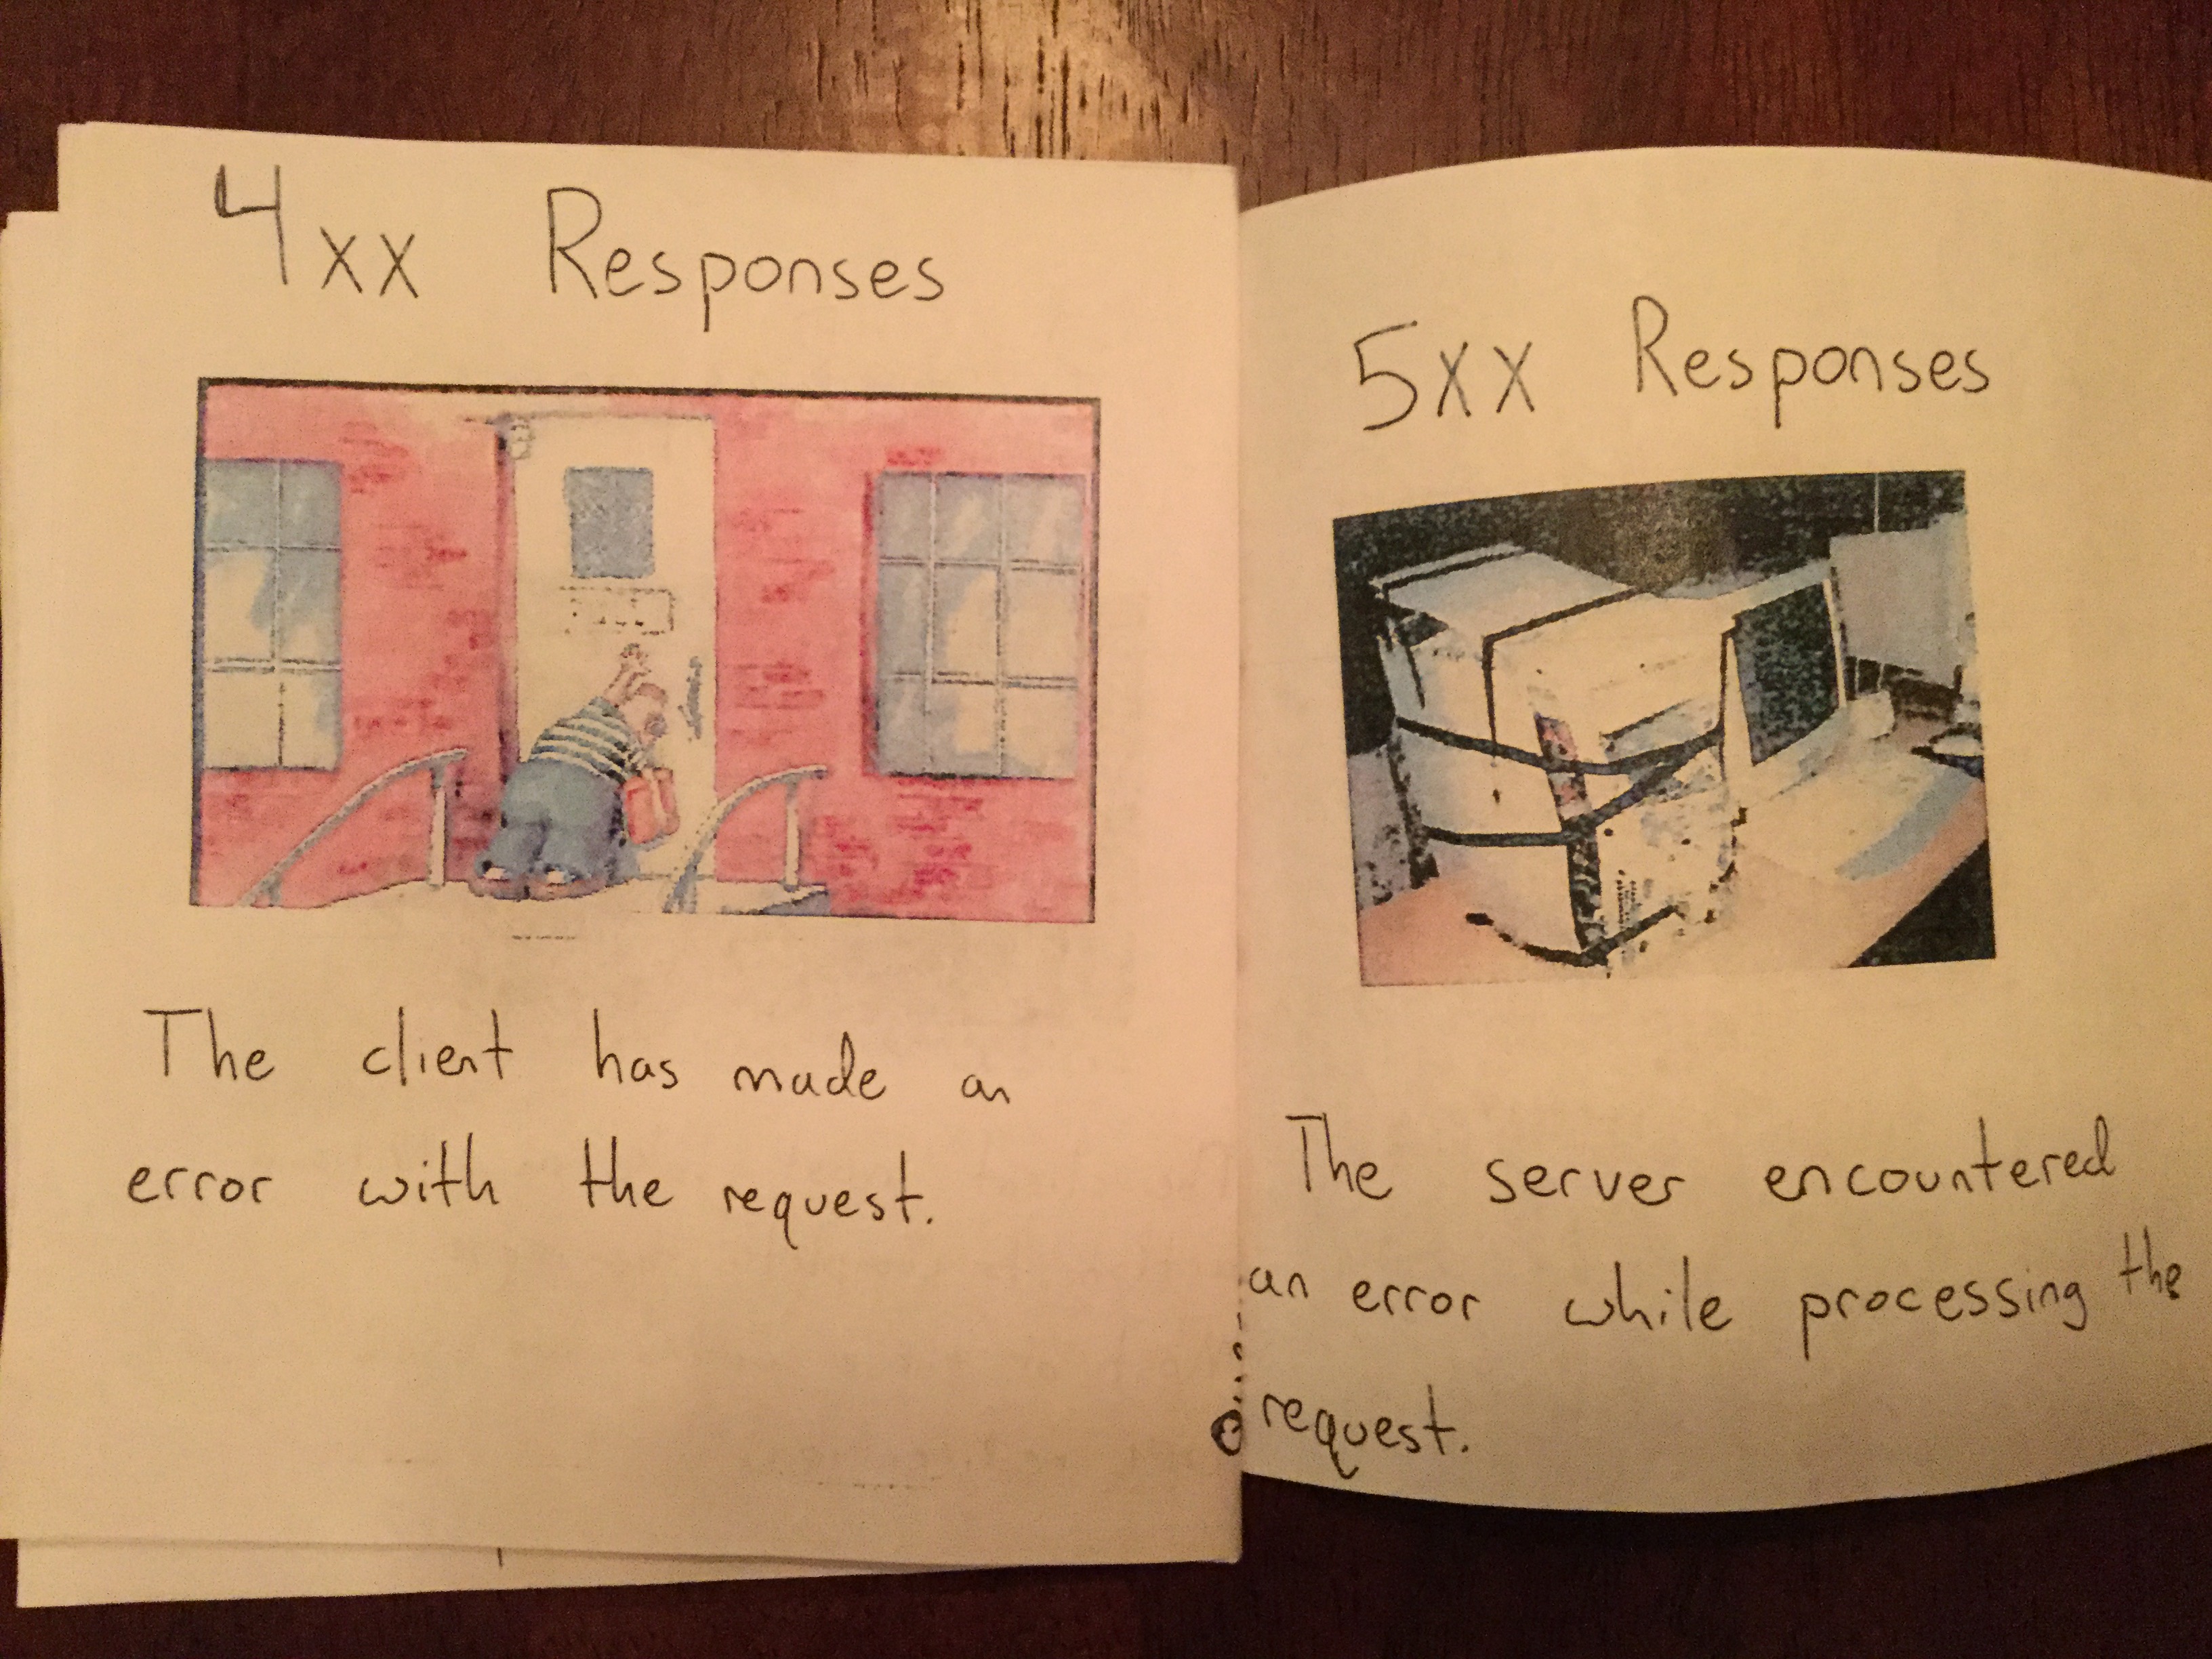 4xx Responses
The client has made an
error with the request.
5xx Responses
The server encountered
an error while processing the
request.